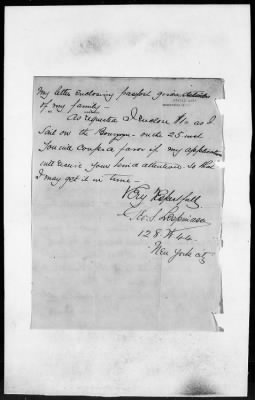 My letter enclosing passport gives
of my family -
As requested I enclose $1.00 as I
sail on the Bourgogne - on the 25 inst
You will confer a favor if my application
will receive your kind attention so that
I may get it in time -
Very Respectfully
128 W 44
New York city